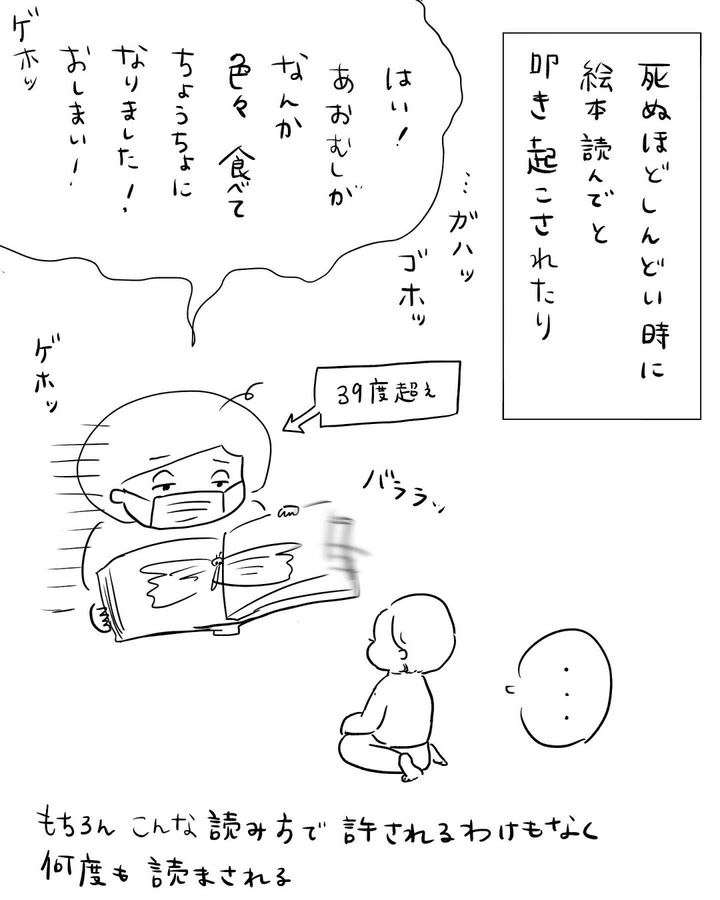 死ぬほどしんどい時に
絵本読んでと
叩き起こされたり
はい!
あおむしが
なんか
色々食べて
ちょうちょに
なりました!
おしまい!
ゲホッ
…ガハッ
ゴホッ
ゲホッ
39度超え
バララッ
...
もちろんこんな読み方で許されるわけもなく
何度も読まされる